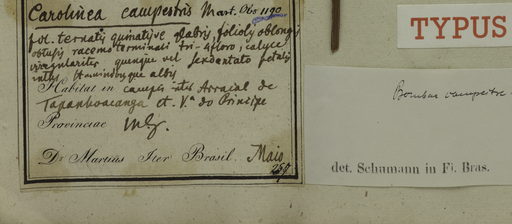 Carolinea campestris Mart. Obs 1190
fol. ternatis quinatisve glabris, foliolis oblongis
obtusis racemo terminali tri-4floro, calyce
irregulariter quinque vel sexdentato petalis
intus staminibusque albis
Habitat in campis inter Arraial de
Tapanhoacanga et V.ª do Principe
Provinciae
Dr. Martius Iter Brasil. Maio
TYPUS
Bombax campestre
det. Schumann in Fl. Bras.